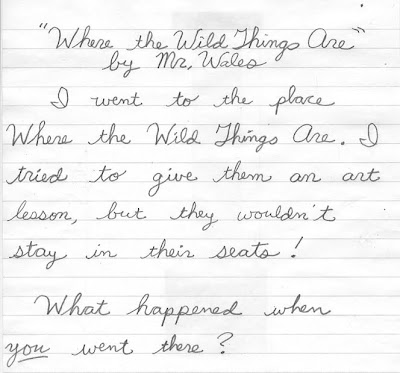 "Where the Wild Things Are"
by Mr. Wales
I went to the place
Where the Wild Things Are. I
tried to give them an art
lesson, but they wouldn't
stay in their seats!
What happened when
you went there?